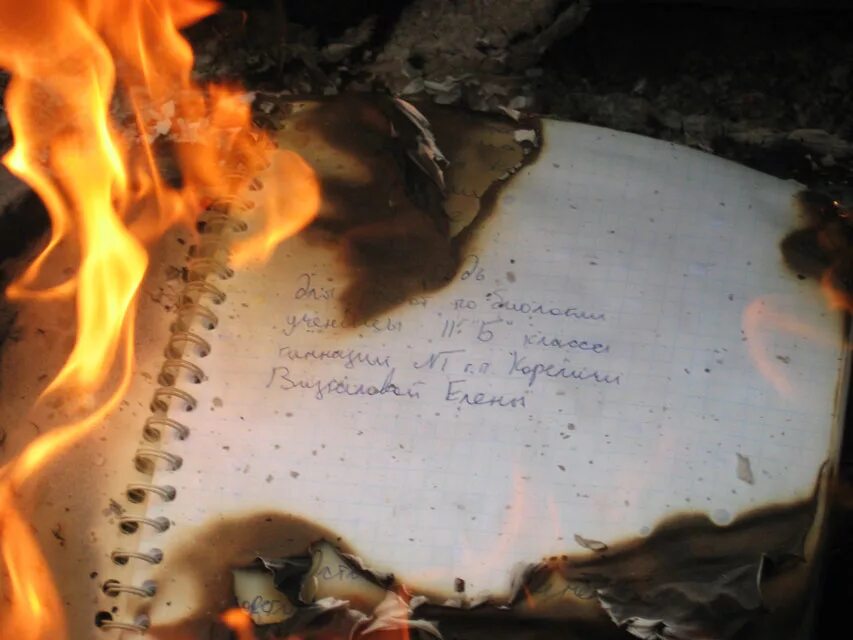 дь
для от по биологии
ученицы 11 "Б" класса
гимназии №1 г.п. Кореличи
Елены